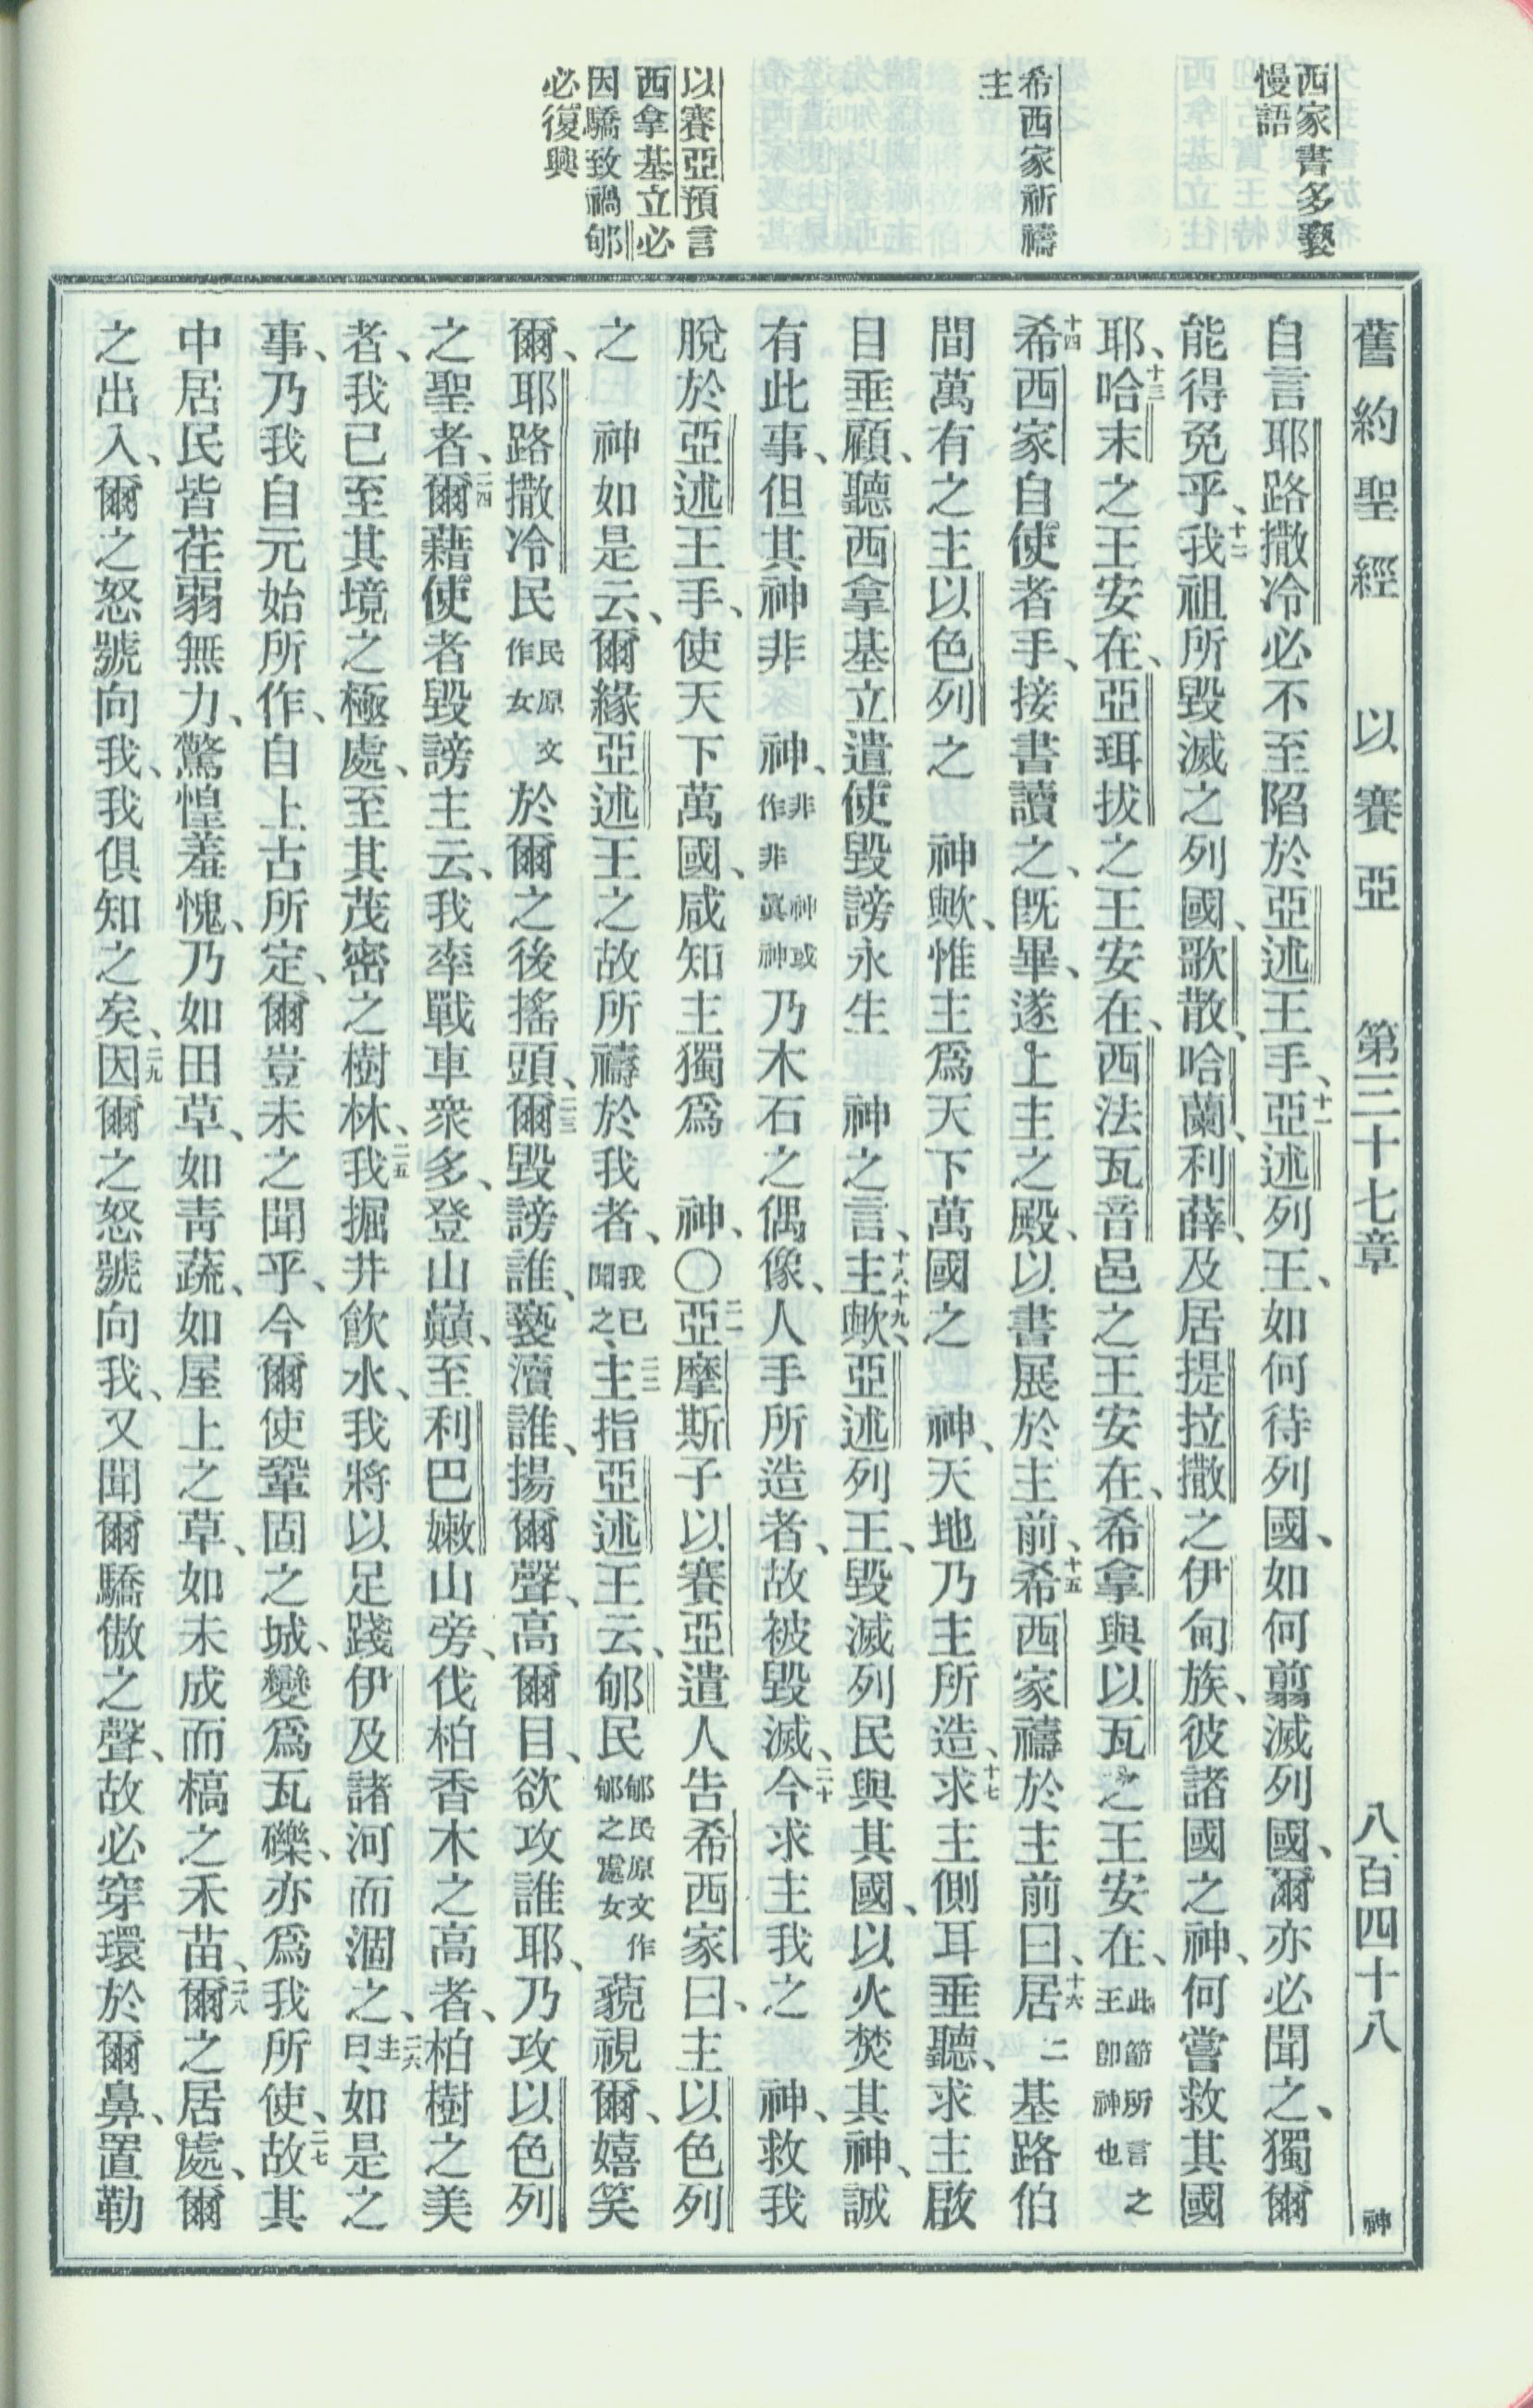 西家書多褻
慢語
希西家祈禱
主
以賽亞預言
西拿基立必
因驕致禍郇
必復興
舊約聖經 以賽亞 第三十七章 八百四十八 神
自言耶路撒冷必不至陷於亞述王手、十一亞述列王、如何待列國、如何翦滅列國、爾亦必聞之、獨爾
能得免乎、十二我祖所毀滅之列國、歌散、哈蘭、利薛、及居提拉撒之伊甸族、彼諸國之神、何嘗救其國
耶、十三哈末之王安在、亞珥拔之王安在、西法瓦音邑之王安在、希拿與以瓦之王安在、此節所言之王卽神也
十四希西家自使者手、接書讀之、旣畢、遂上主之殿、以書展於主前、十五希西家禱於主前曰、十六居二基路伯
間萬有之主以色列之 神歟、惟主爲天下萬國之 神、天地乃主所造、十七求主側耳垂聽、求主啟
目垂顧、聽西拿基立遣使毀謗永生 神之言、十八十九主歟、亞述列王、毀滅列民與其國、以火焚其神、誠
有此事、但其神非 神、非神或作非眞神乃木石之偶像、人手所造者、故被毀滅、二十今求主我之 神、救我
脫於亞述王手、使天下萬國、咸知主獨爲 神、〇二一亞摩斯子以賽亞遣人告希西家曰、主以色列
之 神如是云、爾緣亞述王之故所禱於我者、我已聞之、二二主指亞述王云、郇民郇民原文作郇之處女藐視爾、嬉笑
爾、耶路撒冷民民原文作女於爾之後搖頭、二三爾毀謗誰、褻瀆誰、揚爾聲、高爾目、欲攻誰耶、乃攻以色列
之聖者、二四爾藉使者毀謗主云、我率戰車衆多、登山巔、至利巴嫩山旁、伐柏香木之高者、柏樹之美
者、我已至其境之極處、至其茂密之樹林、二五我掘井飲水、我將以足踐伊及諸河而涸之、二六主曰、如是之
事、乃我自元始所作、自上古所定、爾豈未之聞乎、今爾使鞏固之城、變爲瓦礫、亦爲我所使、二七故其
中居民皆荏弱無力、驚惶羞愧、乃如田草、如靑蔬、如屋上之草、如未成而槁之禾苗、二八爾之居處、爾
之出入、爾之怒號向我、我俱知之矣、二九因爾之怒號向我、又聞爾驕傲之聲、故必穿環於爾鼻、置勒